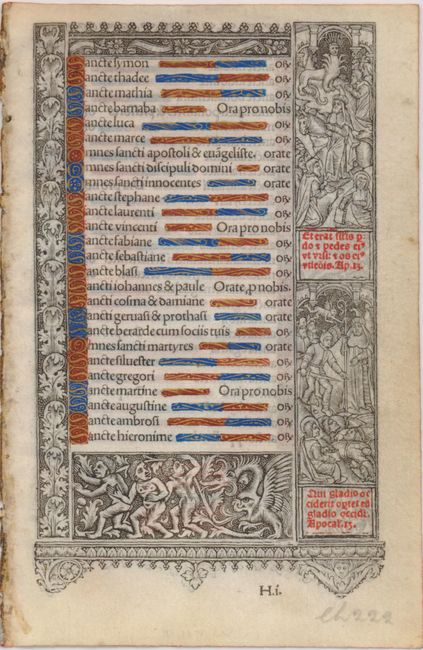 ancte symon or̃
ancte thadee or̃
ancte mathia or̃
ancte barnaba Ora pro nobis
ancte luca or̃
ancte marce or̃
mnes sancti apostoli & euãgeliste. orate
mnes sancti discipuli domini orate
mnes sancti innocentes orate
ancte stephane or̃
ancte laurenti or̃
ancte vincenti Ora pro nobis
ancte fabiane or̃
ancte sebastiane or̃
ancte blasi or̃
ancti iohannes & paule Orate, p nobis.
ancti cosma & damiane orate
ancti geruasi & prothasi orate
ancte berarde cum sociis tuis or̃
mnes sancti martyres orate
ancte siluester or̃
ancte gregori or̃
ancte martine Ora pro nobis
ancte augustine or̃
ancte ambrosi or̃
ancte hieronime or̃
Et erat
Ap. 13.
Qui gladio oc
ciderit
gladio occidi.
Apocal. 13.
H.i.